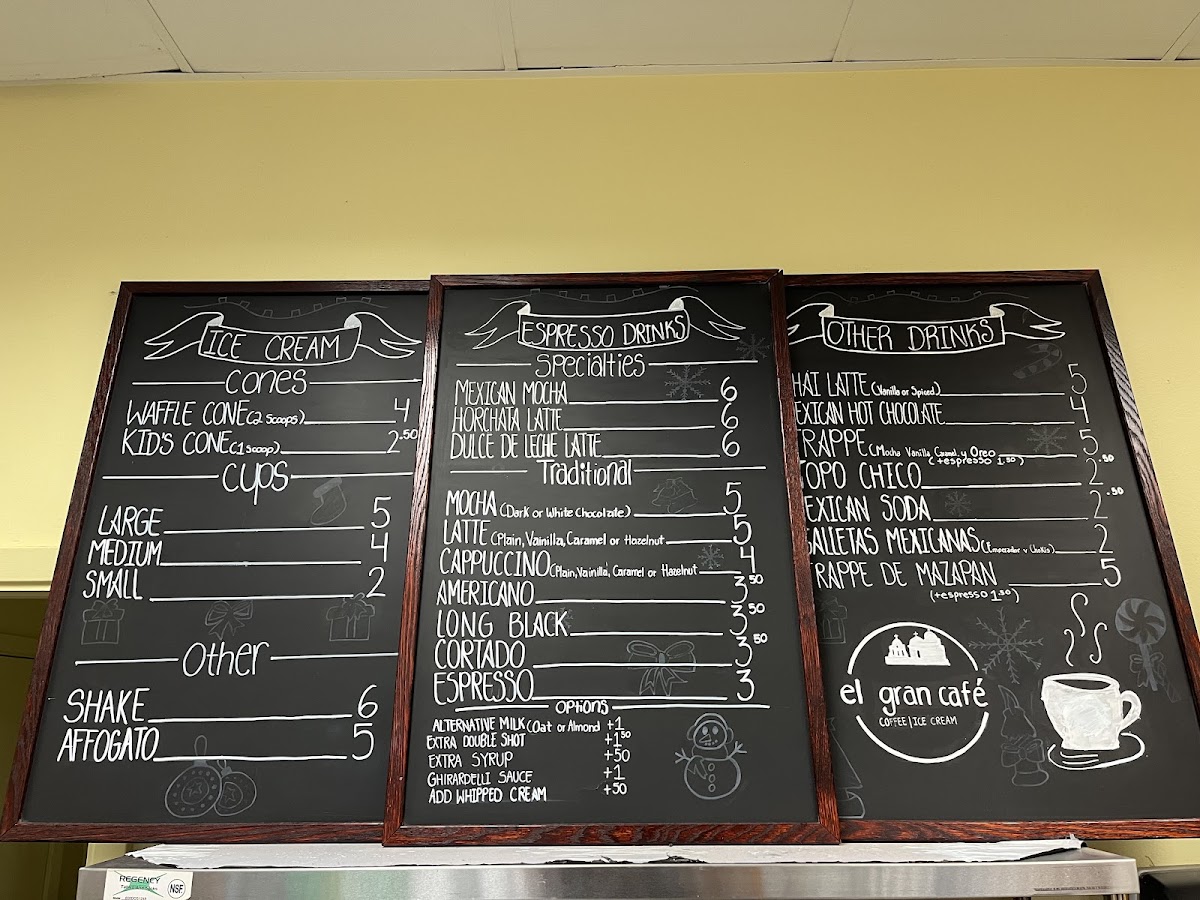 ICE CREAM
cones
WAFFLE CONE (2 scoops) 4
KID'S CONE (1 scoop) 2.50
cups
LARGE 5
MEDIUM 4
SMALL 2
Other
SHAKE 6
AFFOGATO 5
ESPRESSO DRINKS
Specialties
MEXICAN MOCHA 6
HORCHATA LATTE 6
DULCE DE LECHE LATTE 6
Traditional
MOCHA (Dark or White Chocolate) 5
LATTE (Plain, Vainilla, Caramel or Hazelnut 5
CAPPUCCINO (Plain, Vainilla, Caramel or Hazelnut 4
AMERICANO 3.50
LONG BLACK 3.50
CORTADO 3.50
ESPRESSO 3
options
ALTERNATIVE MILK (Oat or Almond +1
EXTRA DOUBLE SHOT +1.50
EXTRA SYRUP +50
GHIRARDELLI SAUCE +1
ADD WHIPPED CREAM +50
OTHER DRINKS
HAI LATTE (Vanilla or Spiced) 5
EXICAN HOT CHOCOLATE 4
FRAPPE (Mocha Vanilla Caramel y Oreo 5
(+espresso 1.50)
TOPO CHICO 2.50
EXICAN SODA 2.50
GALLETAS MEXICANAS (Emperador y Chokis) 2
FRAPPE DE MAZAPAN 5
(+espresso 1.50)
el gran café
COFFEE | ICE CREAM
REGENCY
NSF